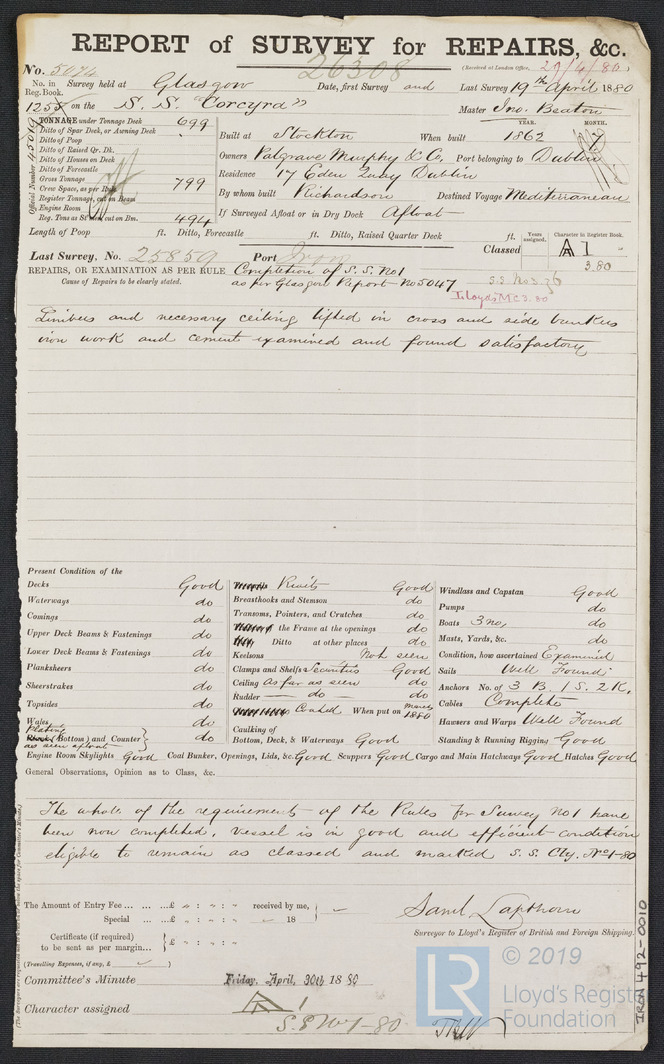 REPORT of SURVEY for REPAIRS, &c.
26308
No. 5074
(Received at London Office, 29/4/80)
No. in Reg. Book. Survey held at Glasgow Date, first Survey and Last Survey 19th April 1880
1255 on the S. S. "Corcyra" Master Jno. Beaton
TONNAGE under Tonnage Deck 699
Ditto of Spar Deck, or Awning Deck
Ditto of Poop
Ditto of Raised Qr. Dk.
Ditto of Houses on Deck
Ditto of Forecastle
Gross Tonnage 799
Crew Space, as per Rule
Register Tonnage, cut on Beam
Engine Room
Reg. Tons as St'mer cut on Bm. 494
Official Number 45019
YEAR. MONTH.
Built at Stockton When built 1862
Owners Palgrave Murphy & Co, Port belonging to Dublin
Residence 17 Eden Quay Dublin
By whom built Richardson Destined Voyage Mediterranean
If Surveyed Afloat or in Dry Dock Afloat
Length of Poop ft. Ditto, Forecastle ft. Ditto, Raised Quarter Deck ft.
Years assigned. Character in Register Book.
Classed A 1
3.80
Last Survey, No. 25859 Port Iron
REPAIRS, OR EXAMINATION AS PER RULE Completion of S. S. No 1
Cause of Repairs to be clearly stated. as per Glasgow Report No 5047
S.S. No 3.76
Lloyds M.C. 3.80
Limbers and necessary ceiling lifted in cross and side bunkers
iron work and cement examined and found satisfactory
Present Condition of the
Decks Good
Waterways do
Comings do
Upper Deck Beams & Fastenings do
Lower Deck Beams & Fastenings do
Planksheers do
Sheerstrakes do
Topsides do
Wales do
Plating (Bottom) and Counter do
as seen afloat
Rivets Good
Breasthooks and Stemson do
Transoms, Pointers, and Crutches do
the Frame at the openings do
Ditto at other places do
Keelsons Not seen
Clamps and Shelfs Good
Ceiling as far as seen do
Rudder do do
Coated When put on March 1880
Caulking of
Bottom, Deck, & Waterways Good
Windlass and Capstan Good
Pumps do
Boats 3 no, do
Masts, Yards, &c. do
Condition, how ascertained Examined
Sails Well Found
Anchors No. of 3 B. 1 S. 2 K.
Cables Complete
Hawsers and Warps Well Found
Standing & Running Rigging Good
Engine Room Skylights Good Coal Bunker, Openings, Lids, &c. Good Scuppers Good Cargo and Main Hatchways Good Hatches Good
General Observations, Opinion as to Class, &c.
The whole of the requirements of the Rules for Survey No 1 have
been now completed, vessel is in good and efficient condition
eligible to remain as classed and marked S. S. Cly. No 1-80
The Amount of Entry Fee ... ... ...£ " : " : " received by me,
Special ... ...£ " : " : " 18
Certificate (if required) to be sent as per margin... £ " : " : "
(Travelling Expenses, if any, £ )
Saml. Lapthorn
Surveyor to Lloyd's Register of British and Foreign Shipping.
Committee's Minute Friday, April, 30th 1880
Character assigned A 1
S.S No 1-80
IRON 492-0010
LR
© 2019
Lloyd's Register
Foundation